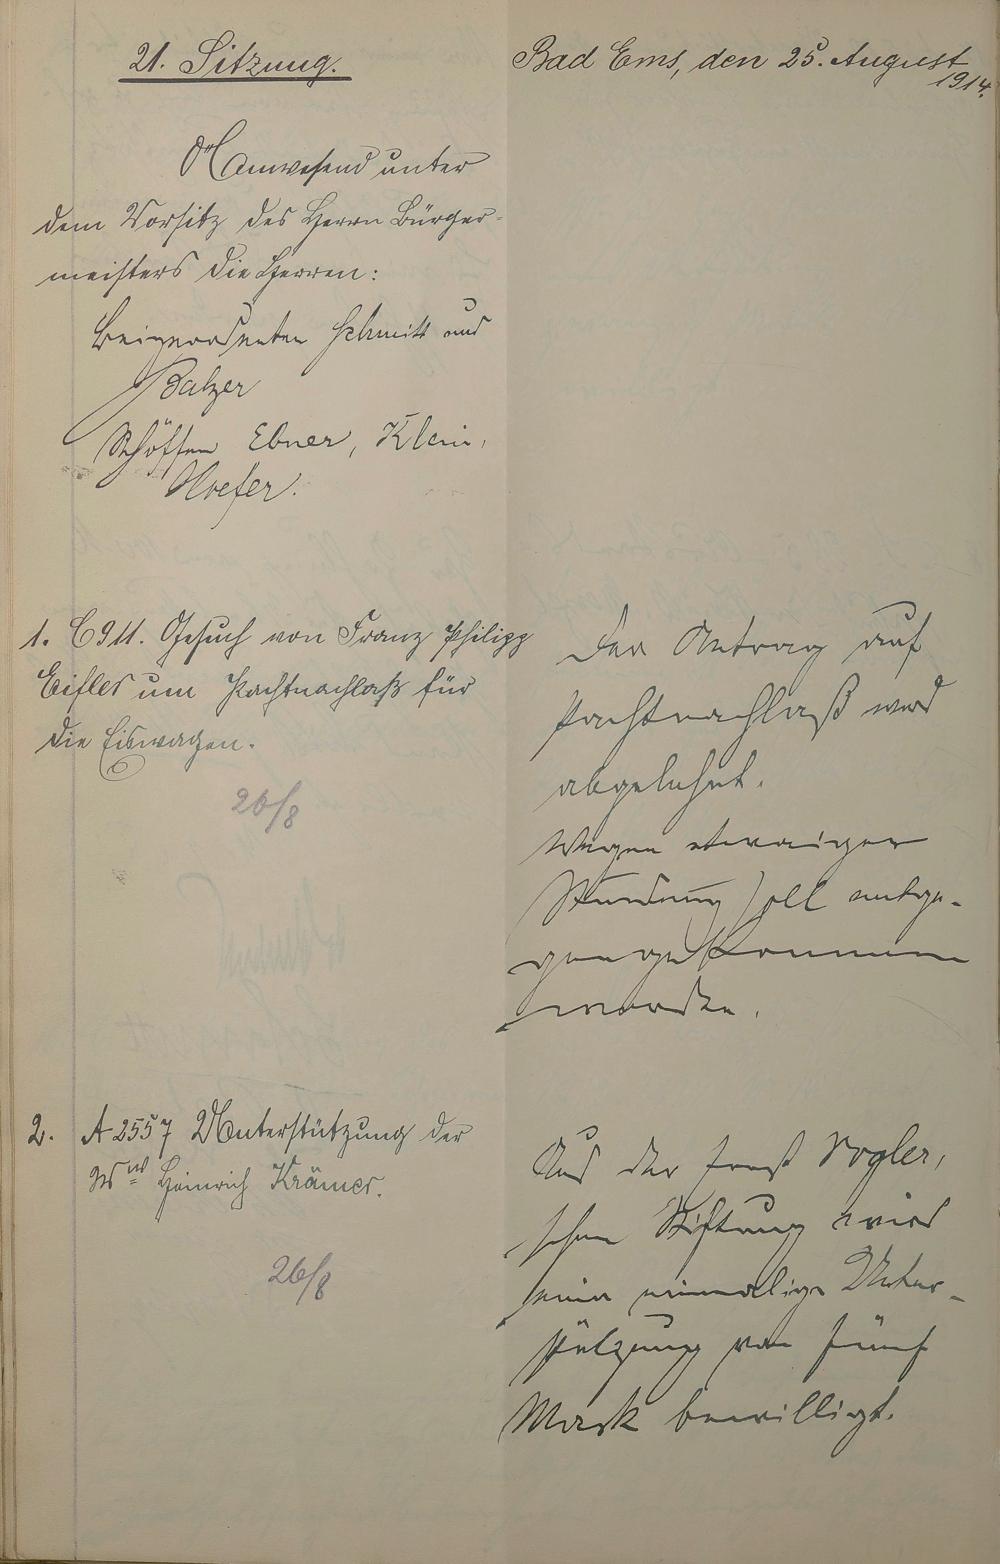 21. Sitzung.
Bad Ems, den 25. August
1914.
Anwesend unter
dem Vorsitz des Herrn Bürger-
meisters die Herren:
Beigeordneten Schmitt und
Balzer
Schöffen Ebner, Klein,
Hoefer.
1. C 911. Gesuch von Franz Philipp
Eifler um Pachtnachlaß für
die Eiswagen.
26/8
Der Antrag auf
Pachtnachlaß wird
abgelehnt.
Wegen etwaiger
Stundung soll entge-
gengekommen
werden.
2. A 2557 Unterstützung der
Ww Heinrich Krämer.
26/8
Aus der Ernst Vogler'
schen Stiftung wird
eine einmalige Unter-
stützung von fünf
Mark bewilligt.